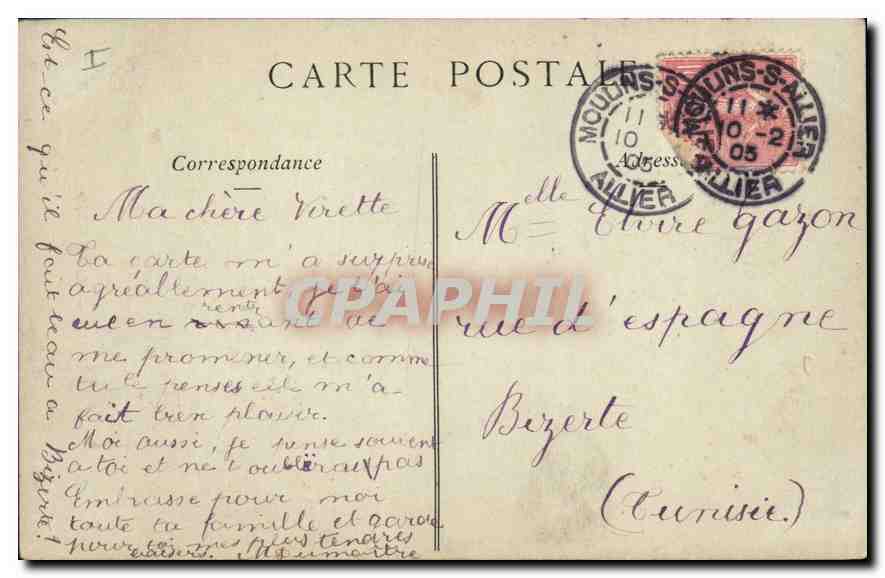 CARTE POSTALE
Correspondance
Ma chère Virette
Ta carte m'a surprise
agréablement je t'ai
eue en rentrant de
me promener, et comme
tu le penses elle m'a
fait bien plaisir.
Moi aussi, je pense souvent
a toi et ne t'oublierai pas
Embrasse pour moi
toute ta famille et garde
pour toi mes plus tendres
baisers. MDumaitre
Est-ce qu'il fait beau a Bizerte!
I
Adresse
Melle Elvire gazon
rue d'espagne
Bizerte
(Tunisie)
MOULINS-S-ALLIER
11 *
10 -2
05
ALLIER
MOULINS-S-ALLIER
11 *
10
05
ALLIER
CPAPHIL